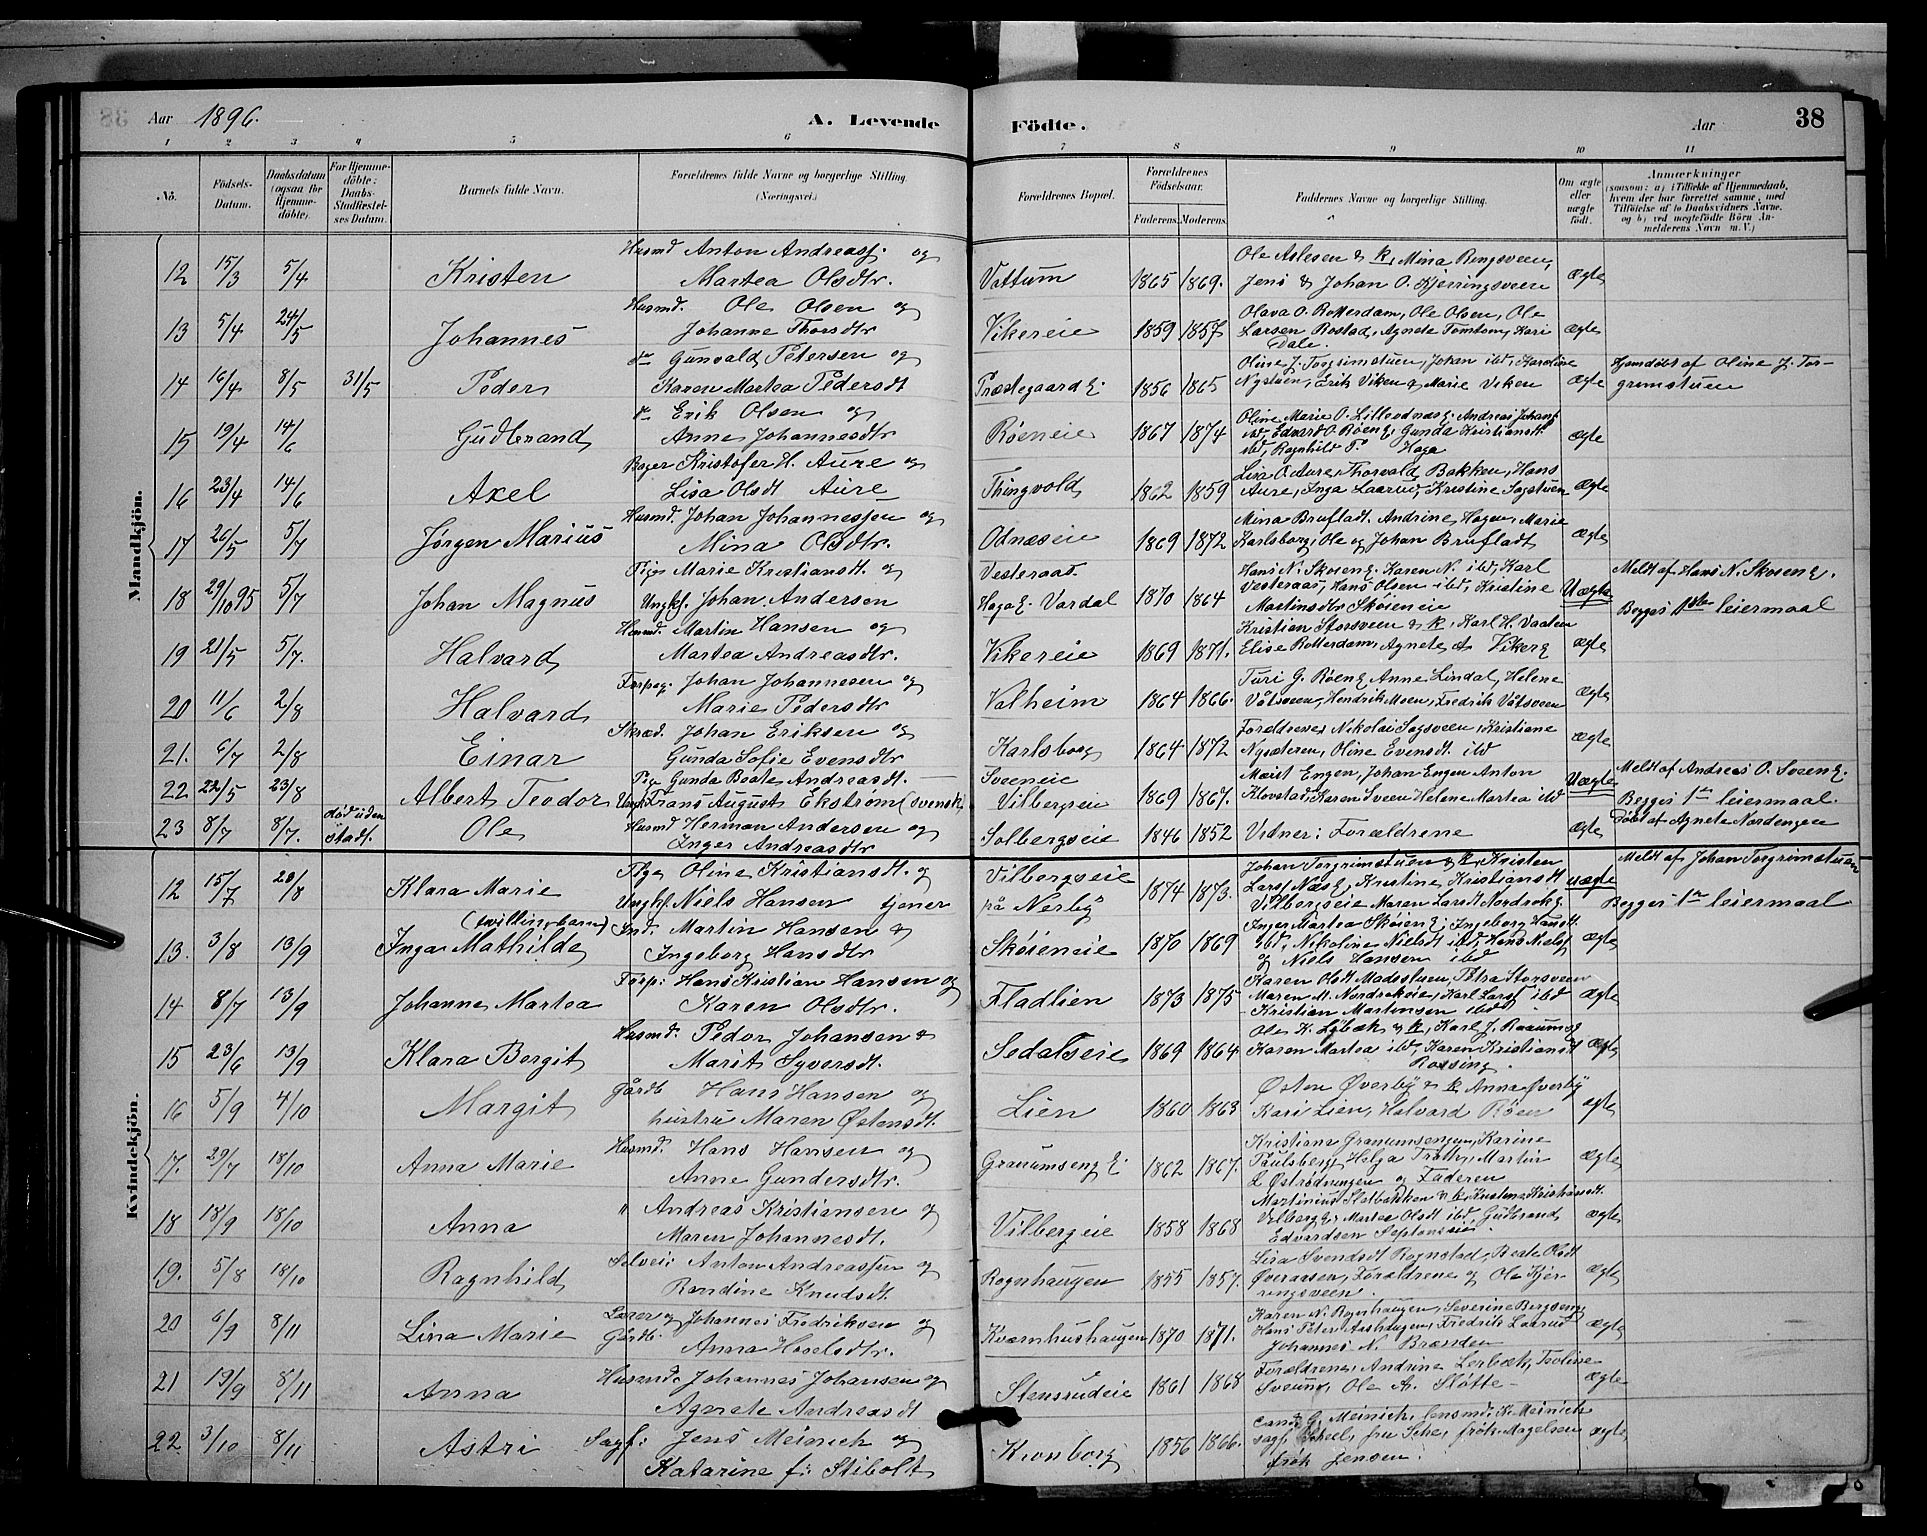 38
Aar 1896.
A. Levende Födte.
Aar
38
1 2 3 4 5 6 7 8 9 10 11
No.
Födsels-Datum.
Daabsdatum (ogsaa for Hjemme-döbte).
For Hjemme-döbte: Daabs-Stadfæstel-ses Datum.
Barnets fulde Navn.
Forældrenes fulde Navne og borgerlige Stilling. (Næringsvei.)
Forældrenes Bopæl.
Forældrenes Födselsaar.
Faderens. Moderens.
Faddernes Navne og borgerlige Stilling.
Om ægte eller uægte födt.
Anmærkninger
(saasom: a) i Tilfælde af Hjemmedaab, hvem der har forrettet samme, med Tilföielse af to Daabsvidners Navne. og b) ved uægtefödte Börn An-melderens Navn m.V.)
Mandkjön.
12 15/3 5/4 Kristen Husmd Anton Andreass. og Martea Olsdtr. Vattum 1865 1869. Ole Aslesen & k, Mina Ringsveen, Jens & Johan O. Kjerringsveen Ægte
13 5/4 24/5 Johannes Husmd. Ole Olsen og Johanne Thorsdtr Vikereie 1859 1857 Olava O. Rotterdam, Ole Olsen, Ole Larsen Rostad, Agnete Tomtom, Kari Dale. Ægte
14 16/4 8/5 31/5 Peder do Gunvald Petersen og Karen Martea Pedersdt Præstegaard E. 1856 1865 Oline J. Torgrimstuen, Johan ibd, Karoline Nystuen, Erik Viken & Marie Viken Ægte Hjemdöbt af Oline J. Tor-grimstuen
15 19/4 14/6 Gudbrand do Erik Olsen og Anne Johannesdtr Røeneie 1867 1874 Oline Marie O. Lilleodnæs, Andreas Johans. ibd, Edvard O. Røen, Gunda Kristiansdt. ibd, Ragnhild P. Haga Ægte
16 23/4 14/6 Axel Bager Kristofer H. Aure og Lisa Olsdt Aure Thingvold 1862 1859 Lisa O. Aure, Thorvald Bakken, Hans Aure, Inga Laarud, Kristine Sogstuen Ægte
17 26/5 5/7 Jørgen Marius Husmd. Johan Johannessen og Mina Olsdtr. Odnæseie 1869 1872 Mina Brufladt. Andrine Hagen, Marie Karlsborg, Ole og Johan Brufladt Ægte
18 29/10 95 5/7 Johan Magnus Pige Marie Kristiansdt. og Ungkf. Johan Andersen Vesteraas. Haga E. Vardal 1870 1864 Hans N. Skoien E. Karen N. ibd, Karl Vesteraas, Hans Olsen ibd, Kristine Martinsdtr Skøieneie Uægte Meldt af Hans N. Skøien E. Begges 1ste leiermaal
19 21/5 5/7. Halvard Husmd. Martin Hansen og Martea Andreasdtr. Vikereie 1869 1871. Kristian Storsveen & k, Karl H. Vaaten Elise Rotterdam, Agnete A Viker E Ægte
20 11/6 2/8 Halvard Forpag. Johan Johannesen og Marie Pedersdtr Valheim 1864 1866. Turi G. Røen E, Anne Lindal, Helene Våtsveen, Hendrik Moen, Fredrik Våtsveen Ægte
21. 6/7 2/8 Einar Skræd. Johan Eriksen og Gunda Sofie Evensdtr Karlsborg 1864 1872 Foreldrene, Nikolai Sogsveen, Kristiane Nysæteren, Oline Evensdt. ibd Ægte
22 22/5 23/8 Albert Teodor Pige Gunda Beate Andreasdt. Ungk. Frans August Ekstrøm (svensk) Sveeneie Vilbergseie 1869 1867. Marit Engen, Johan Engen Anton Klovstad, Karen Sveen Helene Martea ibd Uægte Meldt af Andreas O. Sveen E. Begges 1ste leiermaal.
23 8/7 8/7. død uden stadf. Ole Husmd Herman Andersen og Inger Andreasdtr Solbergseie 1846 1852 Vidner: Forældrene Ægte Døbt af Agnete Nordengen
Kvindekjön.
12 15/7 20/8 Klara Marie Pige Oline Kristiansdt. og Ungkf. Niels Hansen tjener Vilbergseie på Nerby 1874 1873. Johan Torgrimstuen & k, Kristen Larss Næs E, Kristine Kristiansdt Vilbergseie Maren Larsdt Nordrok E. uægte Meldt af Johan Torgrimstuen Begges 1ste leiermaal
13. 3/8 13/9 (tvillingbarn) Inga Mathilde Ind. Martin Hansen & Ingeborg Hansdtr Skøieneie 1870 1869 Inger Martea Skøien E, Ingeborg Hansdt. ibd, Nikoline Nielsdt ibd, Hans Nielss og Niels Hansen ibd Ægte
14 8/7 13/9 Johanne Martea Forp: Hans Kristian Hansen og Karen Olsdtr. Fladlien 1873 1875 Karen Olsdt Madsstuen, Petra Storsveen Maren M. Nordrokeie, Karl Larss ibd Kristian Martinsen ibd Ægte
15 23/6 13/9 Klara Bergit Husmd. Peder Johansen & Marit Syversdt. Sedalseie 1869 1864 Ole K. Lybæk & k, Karl J. Raaums E Karen Martea ibd, Karen Kristiansdt Rossing. Ægte
16 5/9 4/10 Margit Gårdb Hans Hansen og hustru Maren Østensdt. Lien 1860 1863 Østen Øverby & k Anna Øverby Kari Lien, Halvard Røen ægte
17. 29/7 18/10 Anna Marie Husmd. Hans Hansen og Anne Gundersdtr. Granumseng E. 1862 1867. Kristiane Granumsengen, Karine Paulsberg, Helga Træthe, Martin L Østrødningen og Faderen Ægte
18 18/9 18/10 Anna " Andreas Kristiansen og Maren Johannesdt. Vilbergeie 1858 1868 Martinius Slatbakken & k, Kristine Kristiansdt. Vilberg E, Martea Olsdt ibd, Gudbrand Edvardsen Ægte
19. 5/8 18/10 Ragnhild Selvei: Anton Andreassen og Randine Knudsdt. Rognhaugen 1855 1857. Lisa Svendsdt Rognstad, Beate Olsdt Øveraasen, Forældrene og Ole Kjer-ringsveen. Ægte
20 6/9 8/11 Lina Marie Lærer og Gårdb. Johannes Fredriksen og Anna Hoelsdtr. Kværnhushaugen 1870 1871. Karen N. Rognhaugen, Severine Bergseng Hans Peter Aashaugen, Fredrik Laarud Johannes N. Brænden Ægte
21 19/9 8/11 Anna Husmd. Johannes Johansen og Agnete Andreasdt Stensrudeie 1861 1868 Forældrene, Andrine Lerbæk, Teoline Sveum, Ole A. Sløtte Ægte
22. 3/10 8/11 Astri Sagf: Jens Meinich og Katarine f: Stibolt Kronborg 1856 1866. cand. G. Meinich, Consm. K. Meinich sagf. Scheel, fru Schee, frøk. Magelsen frøk Jensen. ægte